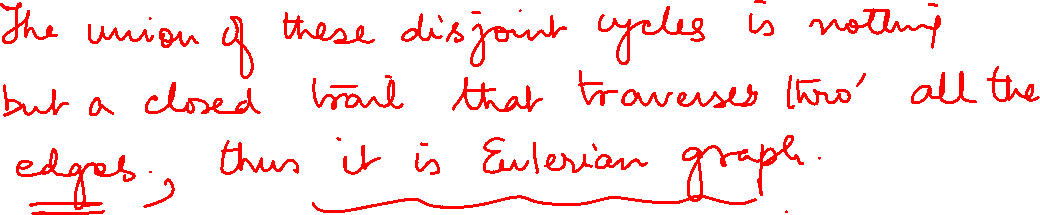 The union of these disjoint cycles is nothing
but a closed trail that traverses thro' all the
edges., thus it is Eulerian graph.